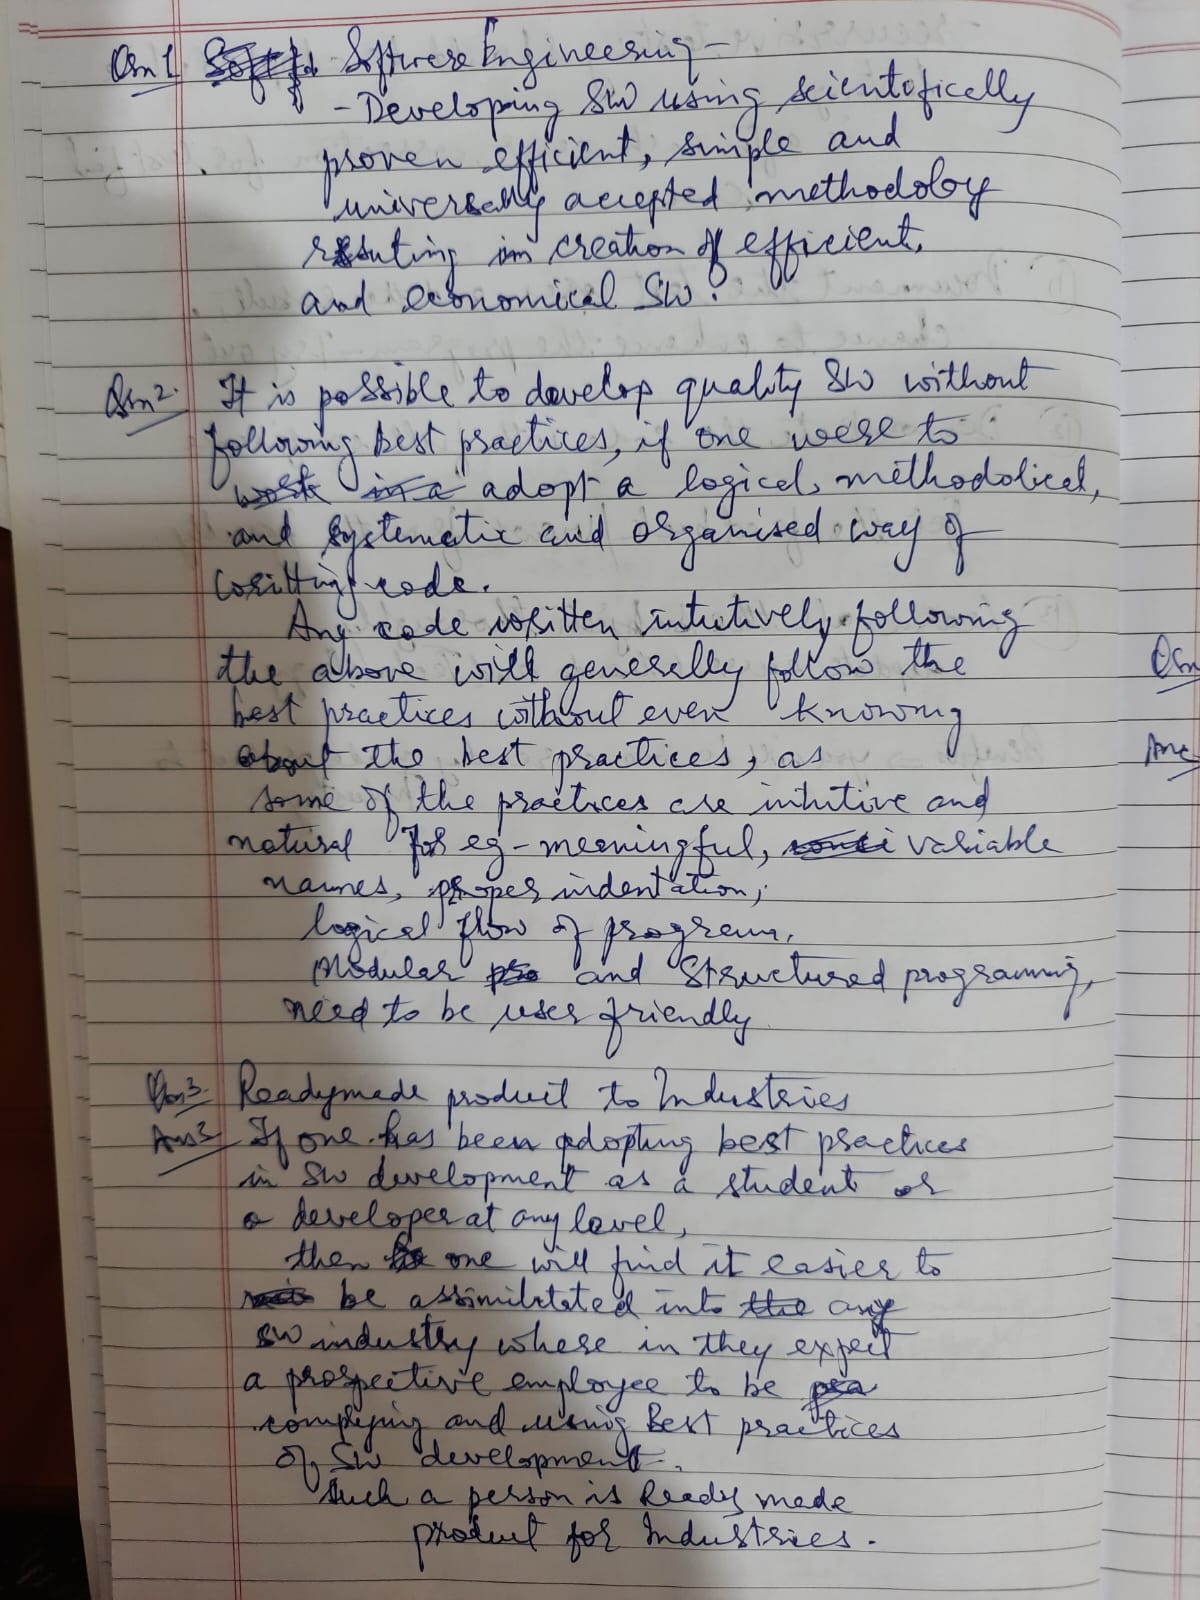 Qsn 1 Software Engineering -
- Developing SW using scientofically
proven efficient, simple and
universally accepted methodoloy
resuting in creation of efficient,
and economical SW.
Qsn 2. It is possible to develop quality SW without
following best practices, if one were to
work in a adopt a logical, methodolical,
and systematic and organised way of
writting code.
Any code written intutively following
the above will generally follow the
best practices without even knowing
about the best practices, as
some of the practices are intutive and
natural for eg - meaningful, variable
names, proper indentation,
logical flow of program,
Modular pro and structured programing,
need to be user friendly
Qsn 3. Readymade product to Industries
Ans 3 If one has been adopting best practices
in SW development as a student or
a developer at any level,
then one will find it easier to
be assimiltated into the any
SW industry where in they expect
a prospective employee to be pra
complying and using Best practices
of SW development.
Such a person is Ready made
product for Industries.
Qsn
Ans